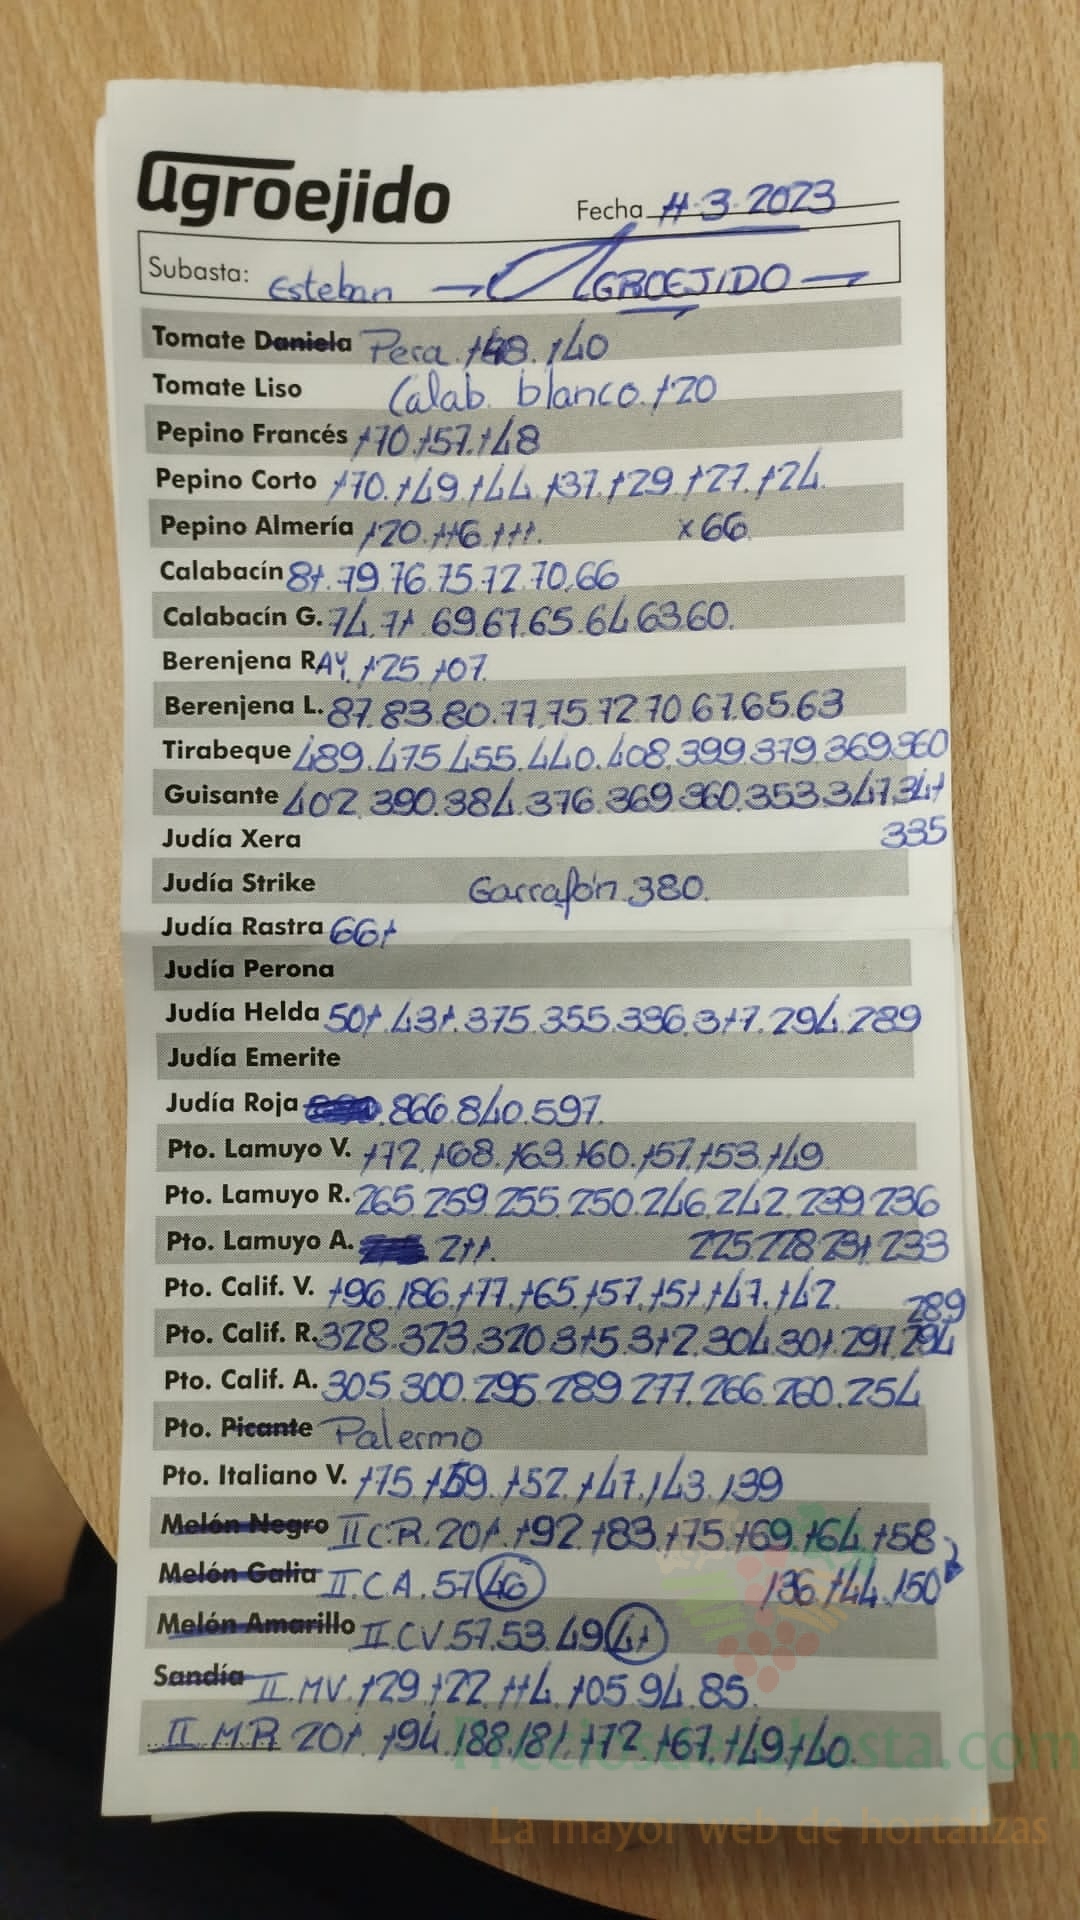 agroejido
Fecha 11-3-2023
Subasta: Esteban → AGROEJIDO →
Tomate Daniela Pera. 148. 140
Tomate Liso Calab. blanco. 120
Pepino Francés 170. 157. 148
Pepino Corto 170. 149. 144. 137. 129. 127. 124.
Pepino Almería 120. 116. 111. x 66
Calabacín 81. 79. 76. 75. 72. 70. 66
Calabacín G. 74. 71. 69. 67. 65. 64. 63. 60.
Berenjena RAY. 125. 107.
Berenjena L. 87. 83. 80. 77. 75. 72. 70. 67. 65. 63
Tirabeque 489. 475. 455. 440. 408. 399. 379. 369. 360
Guisante 402. 390. 384. 376. 369. 360. 353. 347. 341
335
Judía Xera
Judía Strike Garrafón. 380.
Judía Rastra 661
Judía Perona
Judía Helda 501. 431. 375. 355. 336. 317. 294. 289
Judía Emerite
Judía Roja 866. 840. 597.
Pto. Lamuyo V. 172. 168. 163. 160. 157. 153. 149
Pto. Lamuyo R. 265. 259. 255. 250. 246. 242. 239. 236
Pto. Lamuyo A. 211. 225. 228. 231. 233
Pto. Calif. V. 196. 186. 177. 165. 157. 151. 147. 142.
289
Pto. Calif. R. 328. 323. 320. 315. 312. 304. 301. 297. 294
Pto. Calif. A. 305. 300. 295. 289. 277. 266. 260. 254
Pto. Picante Palermo
Pto. Italiano V. 175. 159. 152. 147. 143. 139
Melón Negro II C.R. 201. 192. 183. 175. 169. 164. 158
Melón Galia II. C. A. 57. 46 136. 144. 150
Melón Amarillo II. C.V. 57. 53. 49. 41
Sandía II. MV. 129. 122. 114. 105. 94. 85.
II. M.R. 201. 194. 188. 181. 172. 167. 149. 140.
Preciosdesubasta.com
La mayor web de hortalizas